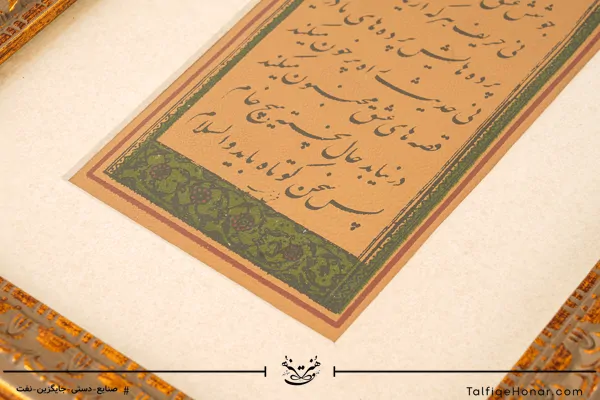 جوشش عشق
نی حریف هرکه از
پرده هایش پرده های ما در
نی حدیث راه پر خون میکند
قصه های عشق مجنون میکند
در نیابد حال پخته هیچ خام
پس سخن کوتاه باید والسلام
# صنایع-دستی-جایگزین-نفت
TalfiqeHonar.com